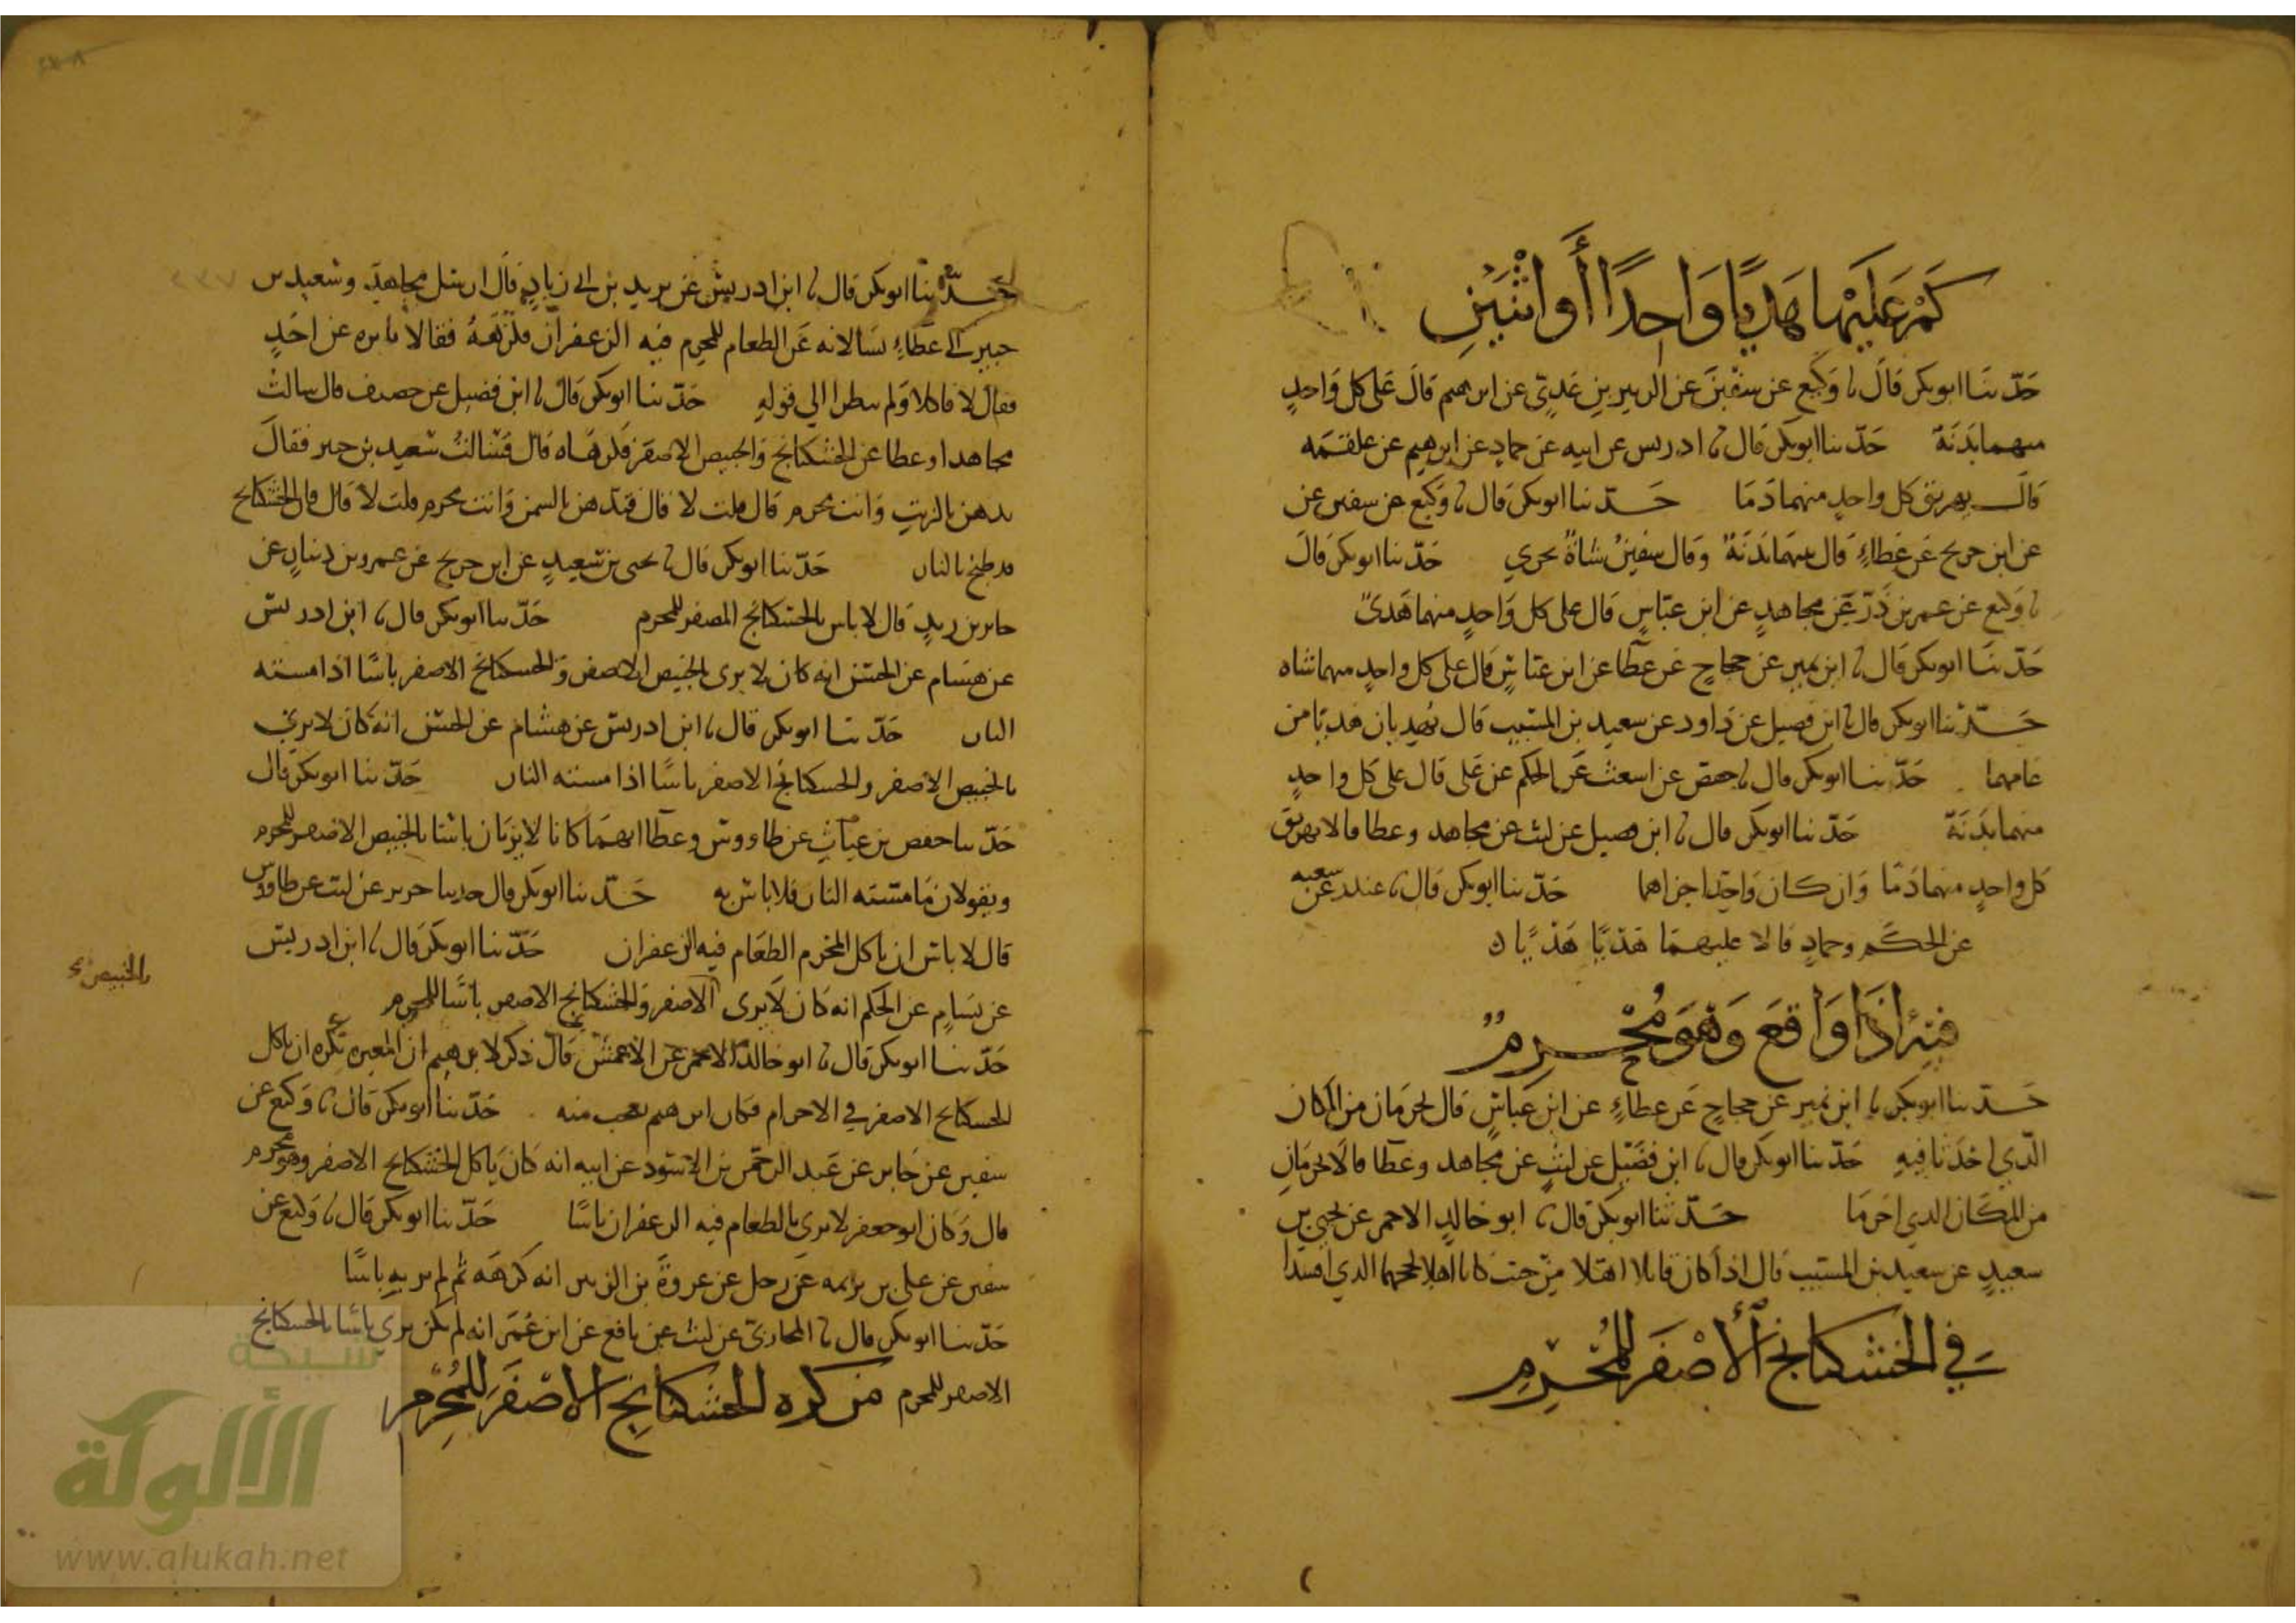 كم عليهما هديا واحدا أو اثنين
حدثنا ابو بكر قال نا وكيع عن سفين عن الزبير بن عدي عن ابرهيم قال على كل واحد
منهما بدنة حدثنا ابو بكر قال نا ادريس عن ابيه عن حماد عن ابرهيم عن علقمه
قال يهريق كل واحد منهما دما حدثنا ابو بكر قال نا وكيع عن سفين عن
عن ابن جريج عن عطاء قال بينهما بدنة وقال سفين شاة تجزي حدثنا ابو بكر قال
نا وكيع عن عمر بن ذر عن مجاهد عن ابن عباس قال على كل واحد منهما هدي
حدثنا ابو بكر قال نا ابن نمير عن حجاج عن عطا عن ابن عباس قال على كل واحد منهما شاه
حدثنا ابو بكر قال نا ابن فضيل عن داود عن سعيد بن المسيب قال يهديان هديا من
عامهما حدثنا ابو بكر قال نا حفص عن اشعث عن الحكم عن علي قال على كل واحد
منهما بدنة حدثنا ابو بكر قال نا ابن فضيل عن ليث عن مجاهد وعطا قالا يهريق
كل واحد منهما دما وان كان واحدا اجزاهما حدثنا ابو بكر قال نا غندر عن شعبه
عن الحكم وحماد قالا عليهما هديا هديان
فيه اذا واقع وهو محرم
حدثنا ابو بكر نا ابن نمير عن حجاج عن عطاء عن ابن عباس قال يحرمان من المكان
الذي احدثا فيه حدثنا ابو بكر قال نا ابن فضيل عن ليث عن مجاهد وعطا قالا يحرمان
من المكان الذي احرما حدثنا ابو بكر قال نا ابو خالد الاحمر عن يحيى بن
سعيد عن سعيد بن المسيب قال اذا كان قابلا اهلا من حيث كانا اهلا لحجهما الذي افسدا
في الخشكنانج الأصفر للمحرم
حدثنا ابو بكر قال نا ابن ادريس عن يزيد بن ابي زياد قال ارسل مجاهد وسعيد بن
جبير الى عطاء يسالانه عن الطعام للمحرم فيه الزعفران فكرهه فقالا تاثره عن احد
فقال لا فاكلا ولم ينظرا الى قوله حدثنا ابو بكر قال نا ابن فضيل عن خصيف قال سالت
مجاهدا وعطا عن الخشكنانج والخبيص الاصفر فكرهاه قال فسالت سعيد بن جبير فقال
تدهن بالزيت وانت محرم قال قلت لا قال فتدهن بالسمن وانت محرم قلت لا قال فان الخشكنانج
قد طبخ بالنار حدثنا ابو بكر قال نا يحيى بن سعيد عن ابن جريج عن عمرو بن دينار عن
جابر بن زيد قال لا باس بالخشكنانج المصفر للمحرم حدثنا ابو بكر قال نا ابن ادريس
عن هشام عن الحسن انه كان لا يرى الخبيص الاصفر والخشكنانج الاصفر باسا اذا مسته
النار حدثنا ابو بكر قال نا ابن ادريس عن هشام عن الحسن انه كان لا يرى
بالخبيص الاصفر والخشكنانج الاصفر باسا اذا مسته النار حدثنا ابو بكر قال
حدثنا حفص بن غياث عن طاووس وعطا انهما كانا لا يريان باسا بالخبيص الاصفر للمحرم
ويقولان ما مسته النار فلا باس به حدثنا ابو بكر قال حدثنا جرير عن ليث عن طاوس
قال لا باس ان ياكل المحرم الطعام فيه الزعفران حدثنا ابو بكر قال نا ابن ادريس
عن بسام عن الحكم انه كان لا يرى الاصفر والخشكنانج الاصفر باسا للمحرم
بالخبيص
حدثنا ابو بكر قال نا ابو خالد الاحمر عن الاعمش قال ذكر لابرهيم ان المغيره يكره ان ياكل
الخشكنانج الاصفر في الاحرام فكان ابرهيم يعجب منه حدثنا ابو بكر قال نا وكيع عن
سفين عن جابر عن عبد الرحمن بن الاسود عن ابيه انه كان ياكل الخشكنانج الاصفر وهو محرم
قال وكان ابو جعفر لا يرى بالطعام فيه الزعفران باسا حدثنا ابو بكر قال نا وكيع عن
سفين عن علي بن بذيمه عن رجل عن عروة بن الزبير انه كرهه ثم لم ير به باسا
حدثنا ابو بكر قال نا المحاربي عن ليث عن نافع عن ابن عمر انه لم يكن يرى باسا بالخشكنانج
الاصفر للمحرم من كره الخشكنانج الاصفر للمحرم
شبكة
الألوكة
www.alukah.net